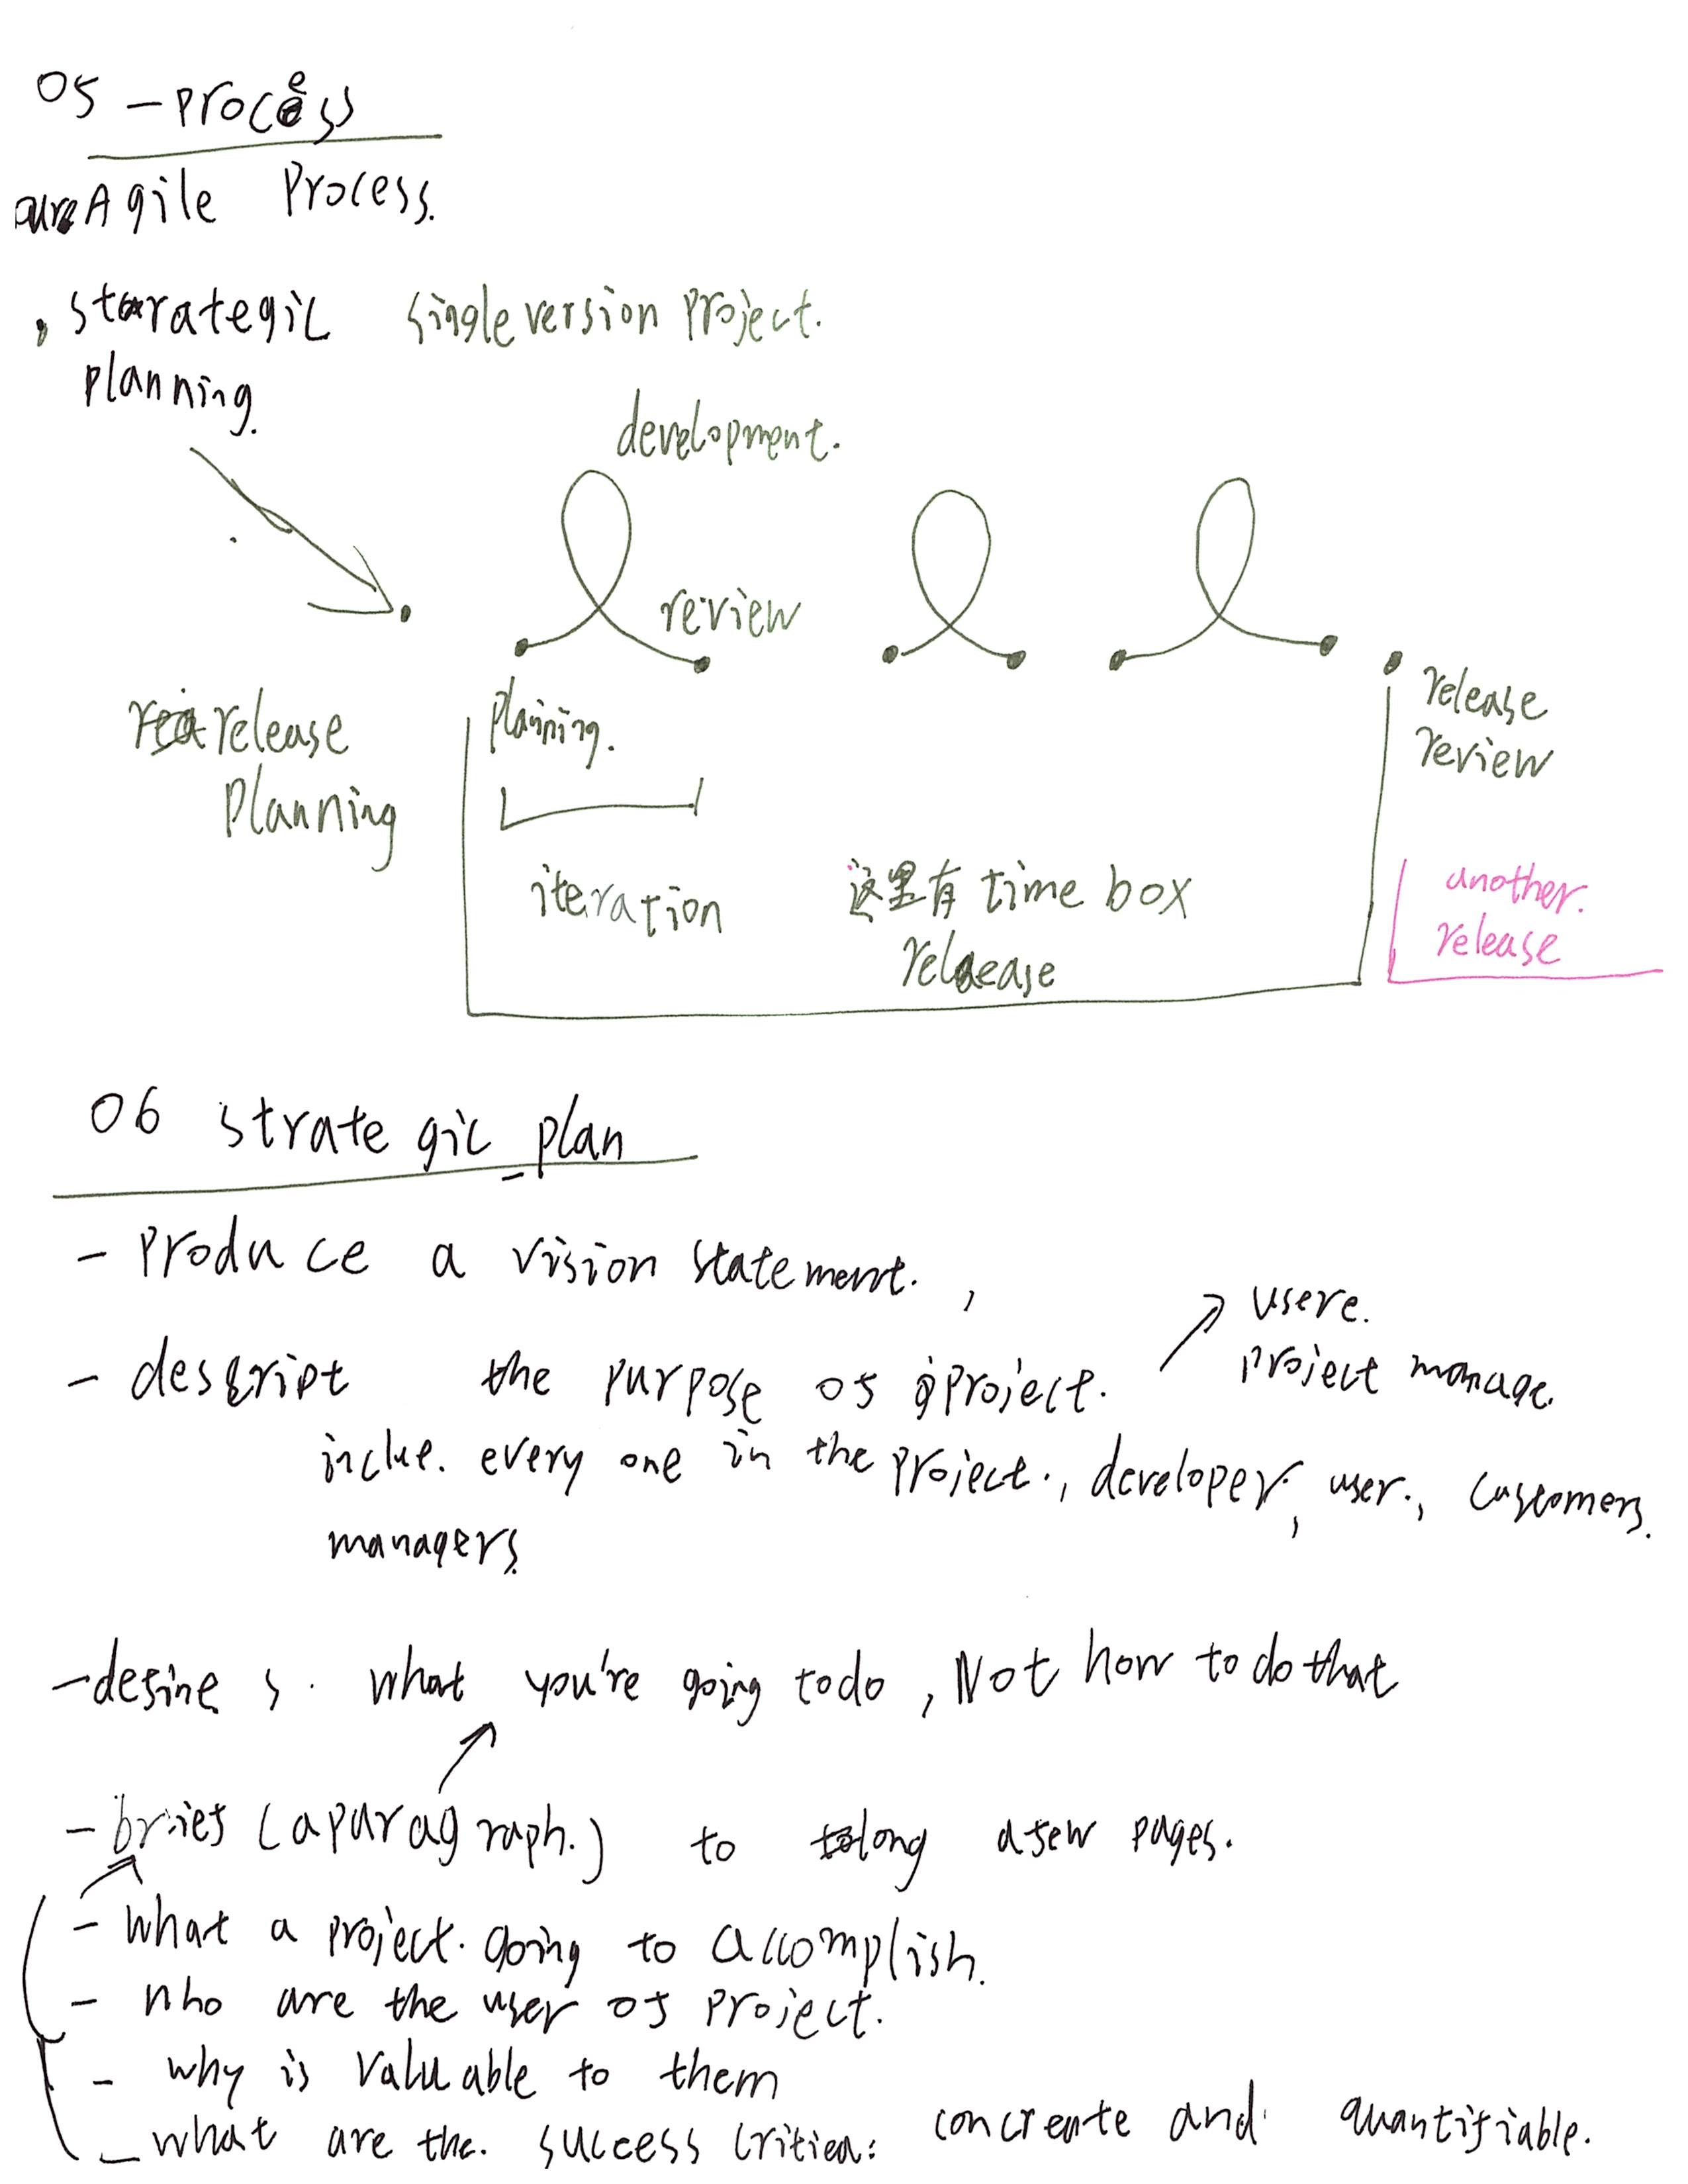 05 - process
Agile Process.
starategic single version project.
planning.
development.
review
release
planning
planing.
release
review
iteration
这里有 time box
relaease
another.
release
06 strategic_plan
- produce a vision statement. ,
- descript the purpose of project.
usere.
project manage.
inclue. every one in the project., developer, user., customers.
managers.
- define s. what you're going to do, Not how to do that
- brief (a paragraph.) to long a few pages.
- what a project. going to accomplish.
- who are the user of project.
- why is valuable to them
- what are the. success critiea: concreate and quantifiable.